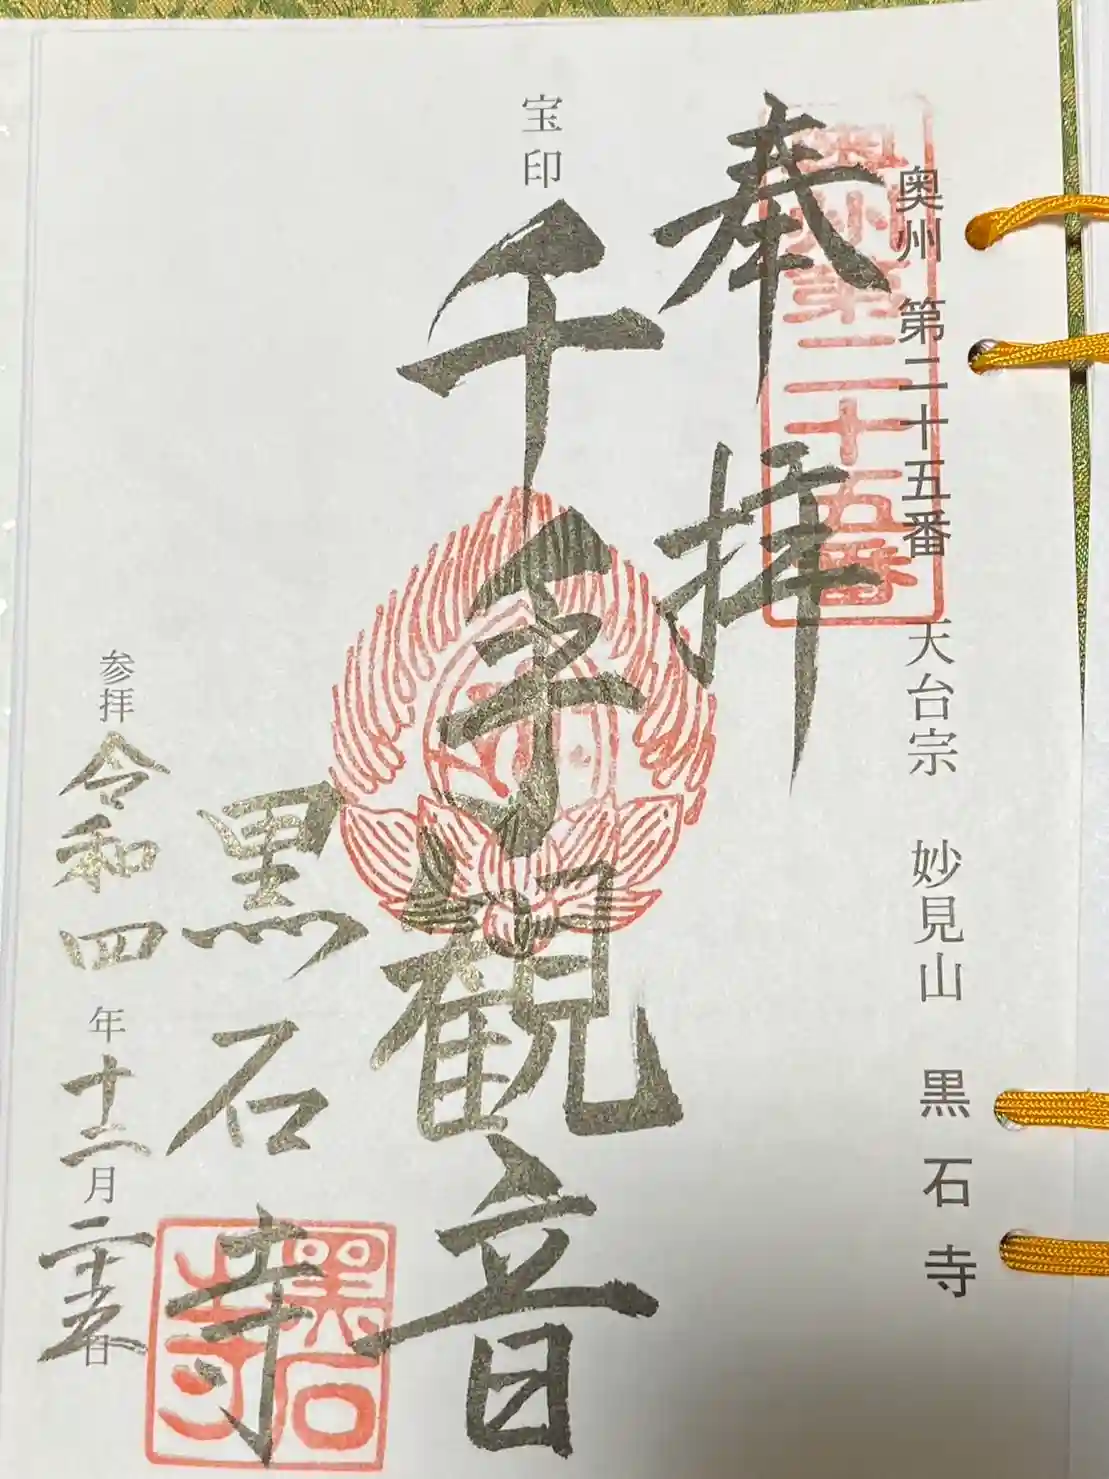 奥州 第二十五番 天台宗 妙見山 黒石寺
奥州第二十五番
奉拝
宝印
千手観音
黒石寺
黒石寺
参拝 令和四年十二月二十五日